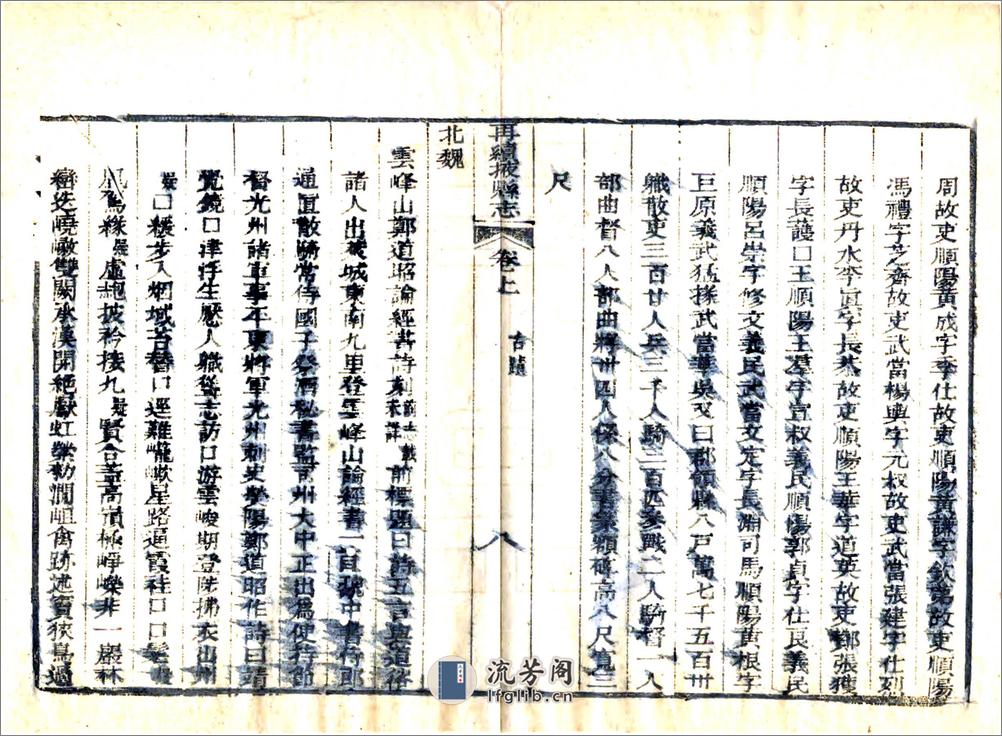 周故吏順陽黃成字季仕故吏順陽黃謙字欽弟故吏順陽
馮禮字芝齋故吏武當楊典字元叔故吏武當張建字仕列
故吏丹水李眞字長恭故吏順陽王華字道英故吏鄼張獲
字長護口王順陽王羣字宣叔義民順陽郭貞字仕良義民
順陽呂崇字修文義民武當文定字長淵司馬順陽黃根字
巨原義武猛掾武當華吳又曰郡領縣八戸萬七千五百廿
職散吏三百廿人兵三千人騎三百匹參戰二人騎督一人
部曲督八人部曲將卅四人保八分書篆額碑高八尺寬三
尺
再續掖縣志
卷上
古蹟
八
北魏
雲峰山鄭道昭論經書詩刻前志載未詳前標題曰詩五言與道俗
諸人出萊城東南九里登雲峰山論經書一首魏中書侍郎
通直散騎常侍國子祭酒秘書監司州大中正出爲使持節
督光州諸軍事平東將軍光州刺史滎陽鄭道昭作詩曰靖
覺鏡口津浮生厭人職聳志訪口游雲峻期登陟拂衣出州
口緩步入煙域苔替口逕難巃嵸星路逼霞挂口口髦
鳳駕緣虛絶披衿接九賢合蓋高嶺極崢嶸非一巖林
巒迭嶢嶔雙闕承漢開絶巘虹縈勒澗岨禽跡迷竇狹鳥過
流芳阁
lfglib.cn